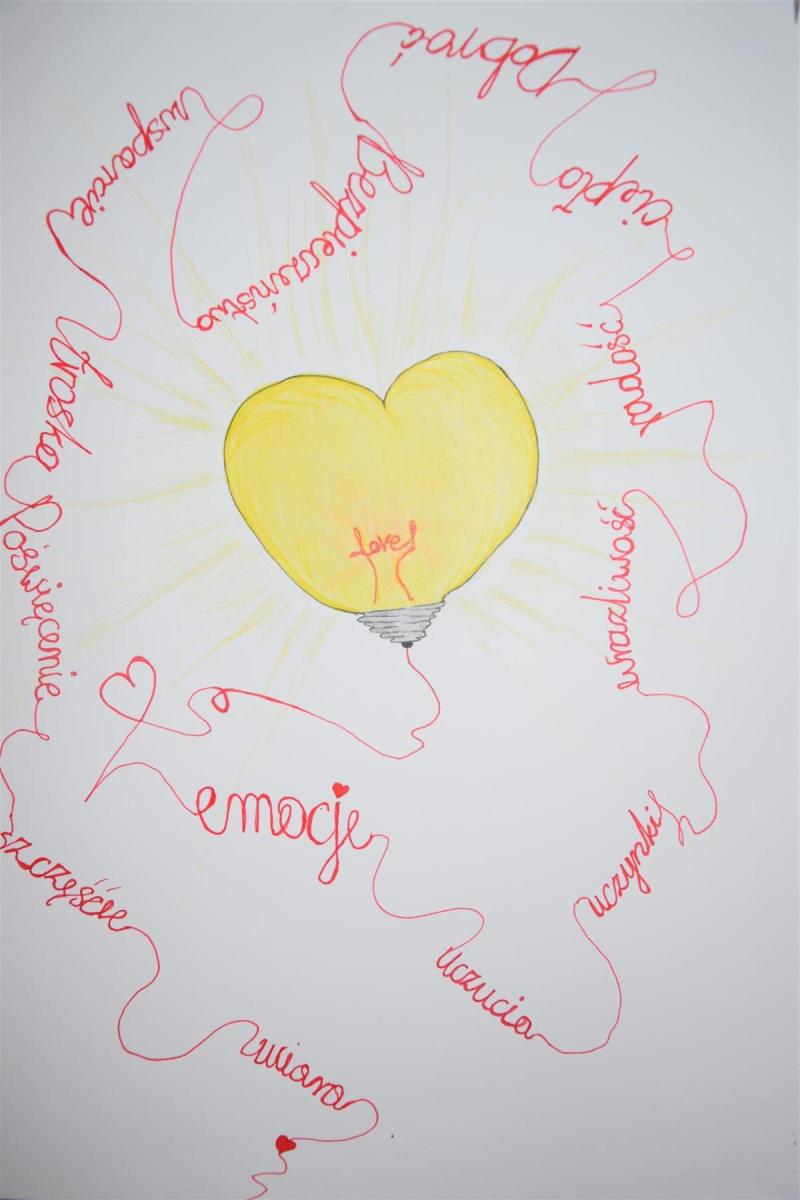 love
emocje
uczucia
uczynki
wrażliwość
radość
ciepło
Dobroć
Bezpieczeństwo
wsparcie
troska
Poświęcenie
szczęście
wiara